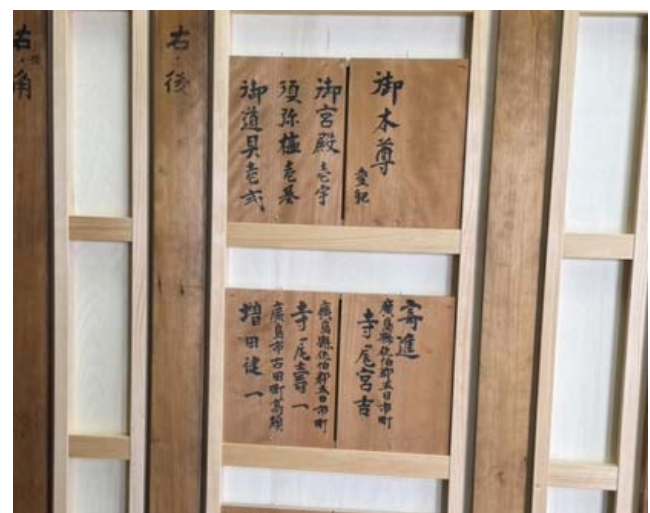 右・後
右・角
御本尊
御宮殿 壱宇
須弥檀壱基
御道具壱式
寄進
廣島縣佐伯郡五日市町
寺尾宮吉
廣島縣佐伯郡五日市町
寺尾壽一
廣島市古田町高須
増田健一